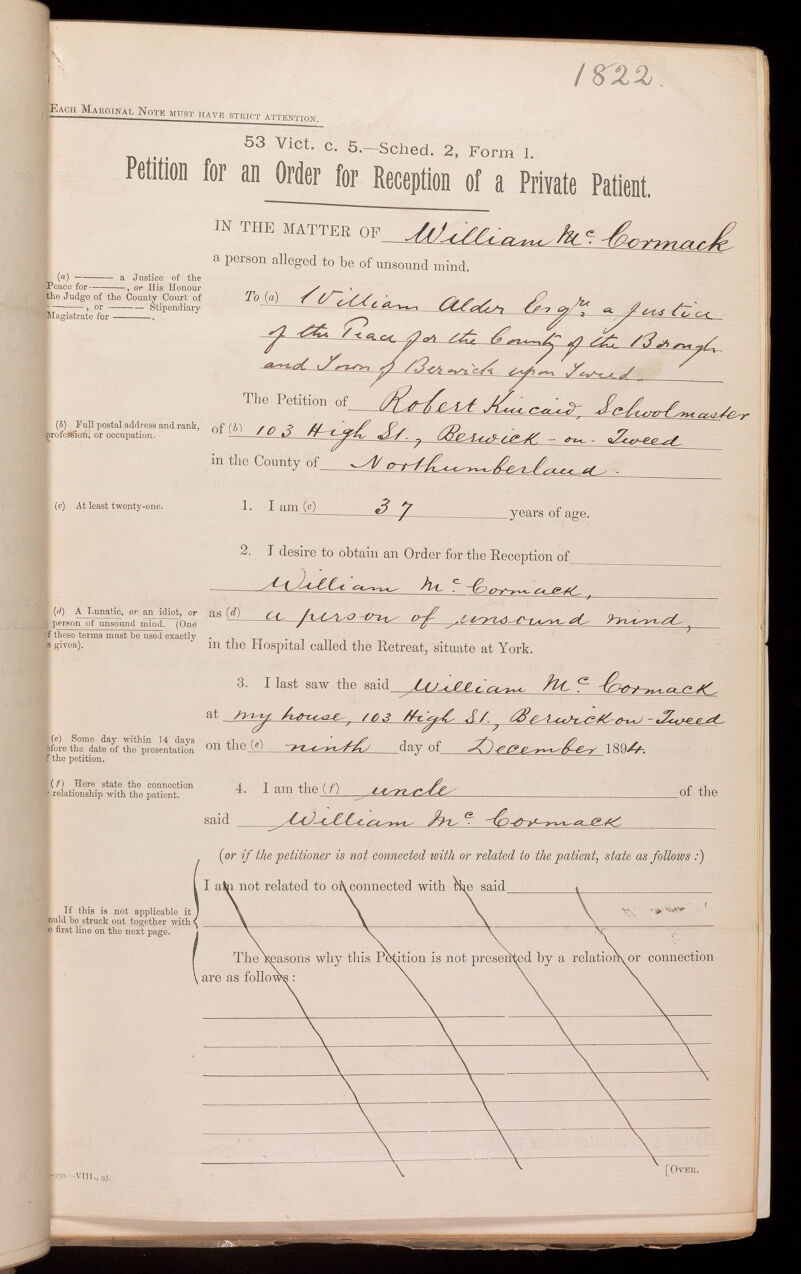 1822.
EACH MARGINAL NOTE MUST HAVE STRICT ATTENTION.
53 Vict. c. 5.—Sched. 2, Form 1.
Petition for an Order for Reception of a Private Patient.
IN THE MATTER OF William Mc. Cormack
a person alleged to be of unsound mind.
(a) ——— a Justice of the
Peace for ———, or His Honour
the Judge of the County Court of
———, or ——— Stipendiary
Magistrate for ———.
To (a) William Alder Esqre. a Justice
of the Peace for the County of the Borough
and Town of Berwick upon Tweed
The Petition of Robert Kincaid, Schoolmaster
(b) Full postal address and rank,
profession, or occupation.
of (b) 103 High St., Berwick-on-Tweed
in the County of Northumberland.
(c) At least twenty-one.
1. I am (c) 37 years of age.
2. I desire to obtain an Order for the Reception of
William Mc. Cormack,
(d) A Lunatic, or an idiot, or
person of unsound mind. (One
f these terms must be used exactly
s given).
as (d) a person of unsound mind,
in the Hospital called the Retreat, situate at York.
3. I last saw the said William Mc. Cormack
at my house, 103 High St., Berwick-on-Tweed
(e) Some day within 14 days
efore the date of the presentation
f the petition.
on the (e) ninth day of December 1894.
(f) Here state the connection
r relationship with the patient.
4. I am the (f) uncle of the
said William Mc. Cormack
(or if the petitioner is not connected with or related to the patient, state as follows :)
I am not related to or connected with the said
If this is not applicable it
ould be struck out together with
e first line on the next page.
The reasons why this Petition is not presented by a relation or connection
are as follows:
-250—VIII., 93.
[OVER.